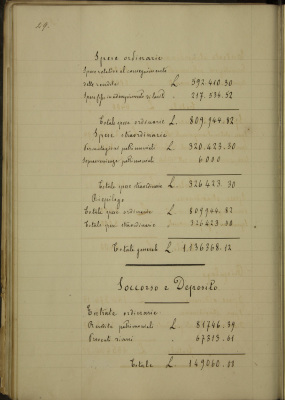 29.
Spese ordinarie
Spese relative al conseguimento
delle rendite L. 592410.30
217.534.52
Totale spese ordinarie L. 809.944.82
Spese straordinarie
Trasmutazioni patrimoniali L. 320.423.30
patrimoniali 6.000
Totale spese straordinarie L. 326423.30
Riepilogo
Totale spese ordinarie L. 809944.82
Totale spese straordinarie 326423.30
Totale generale L. 1.136368.12
Soccorso e Deposito
Entrate ordinarie
Rendite patrimoniali L. 81746.39
Proventi diversi 67313.61
Totale L. 149060.11